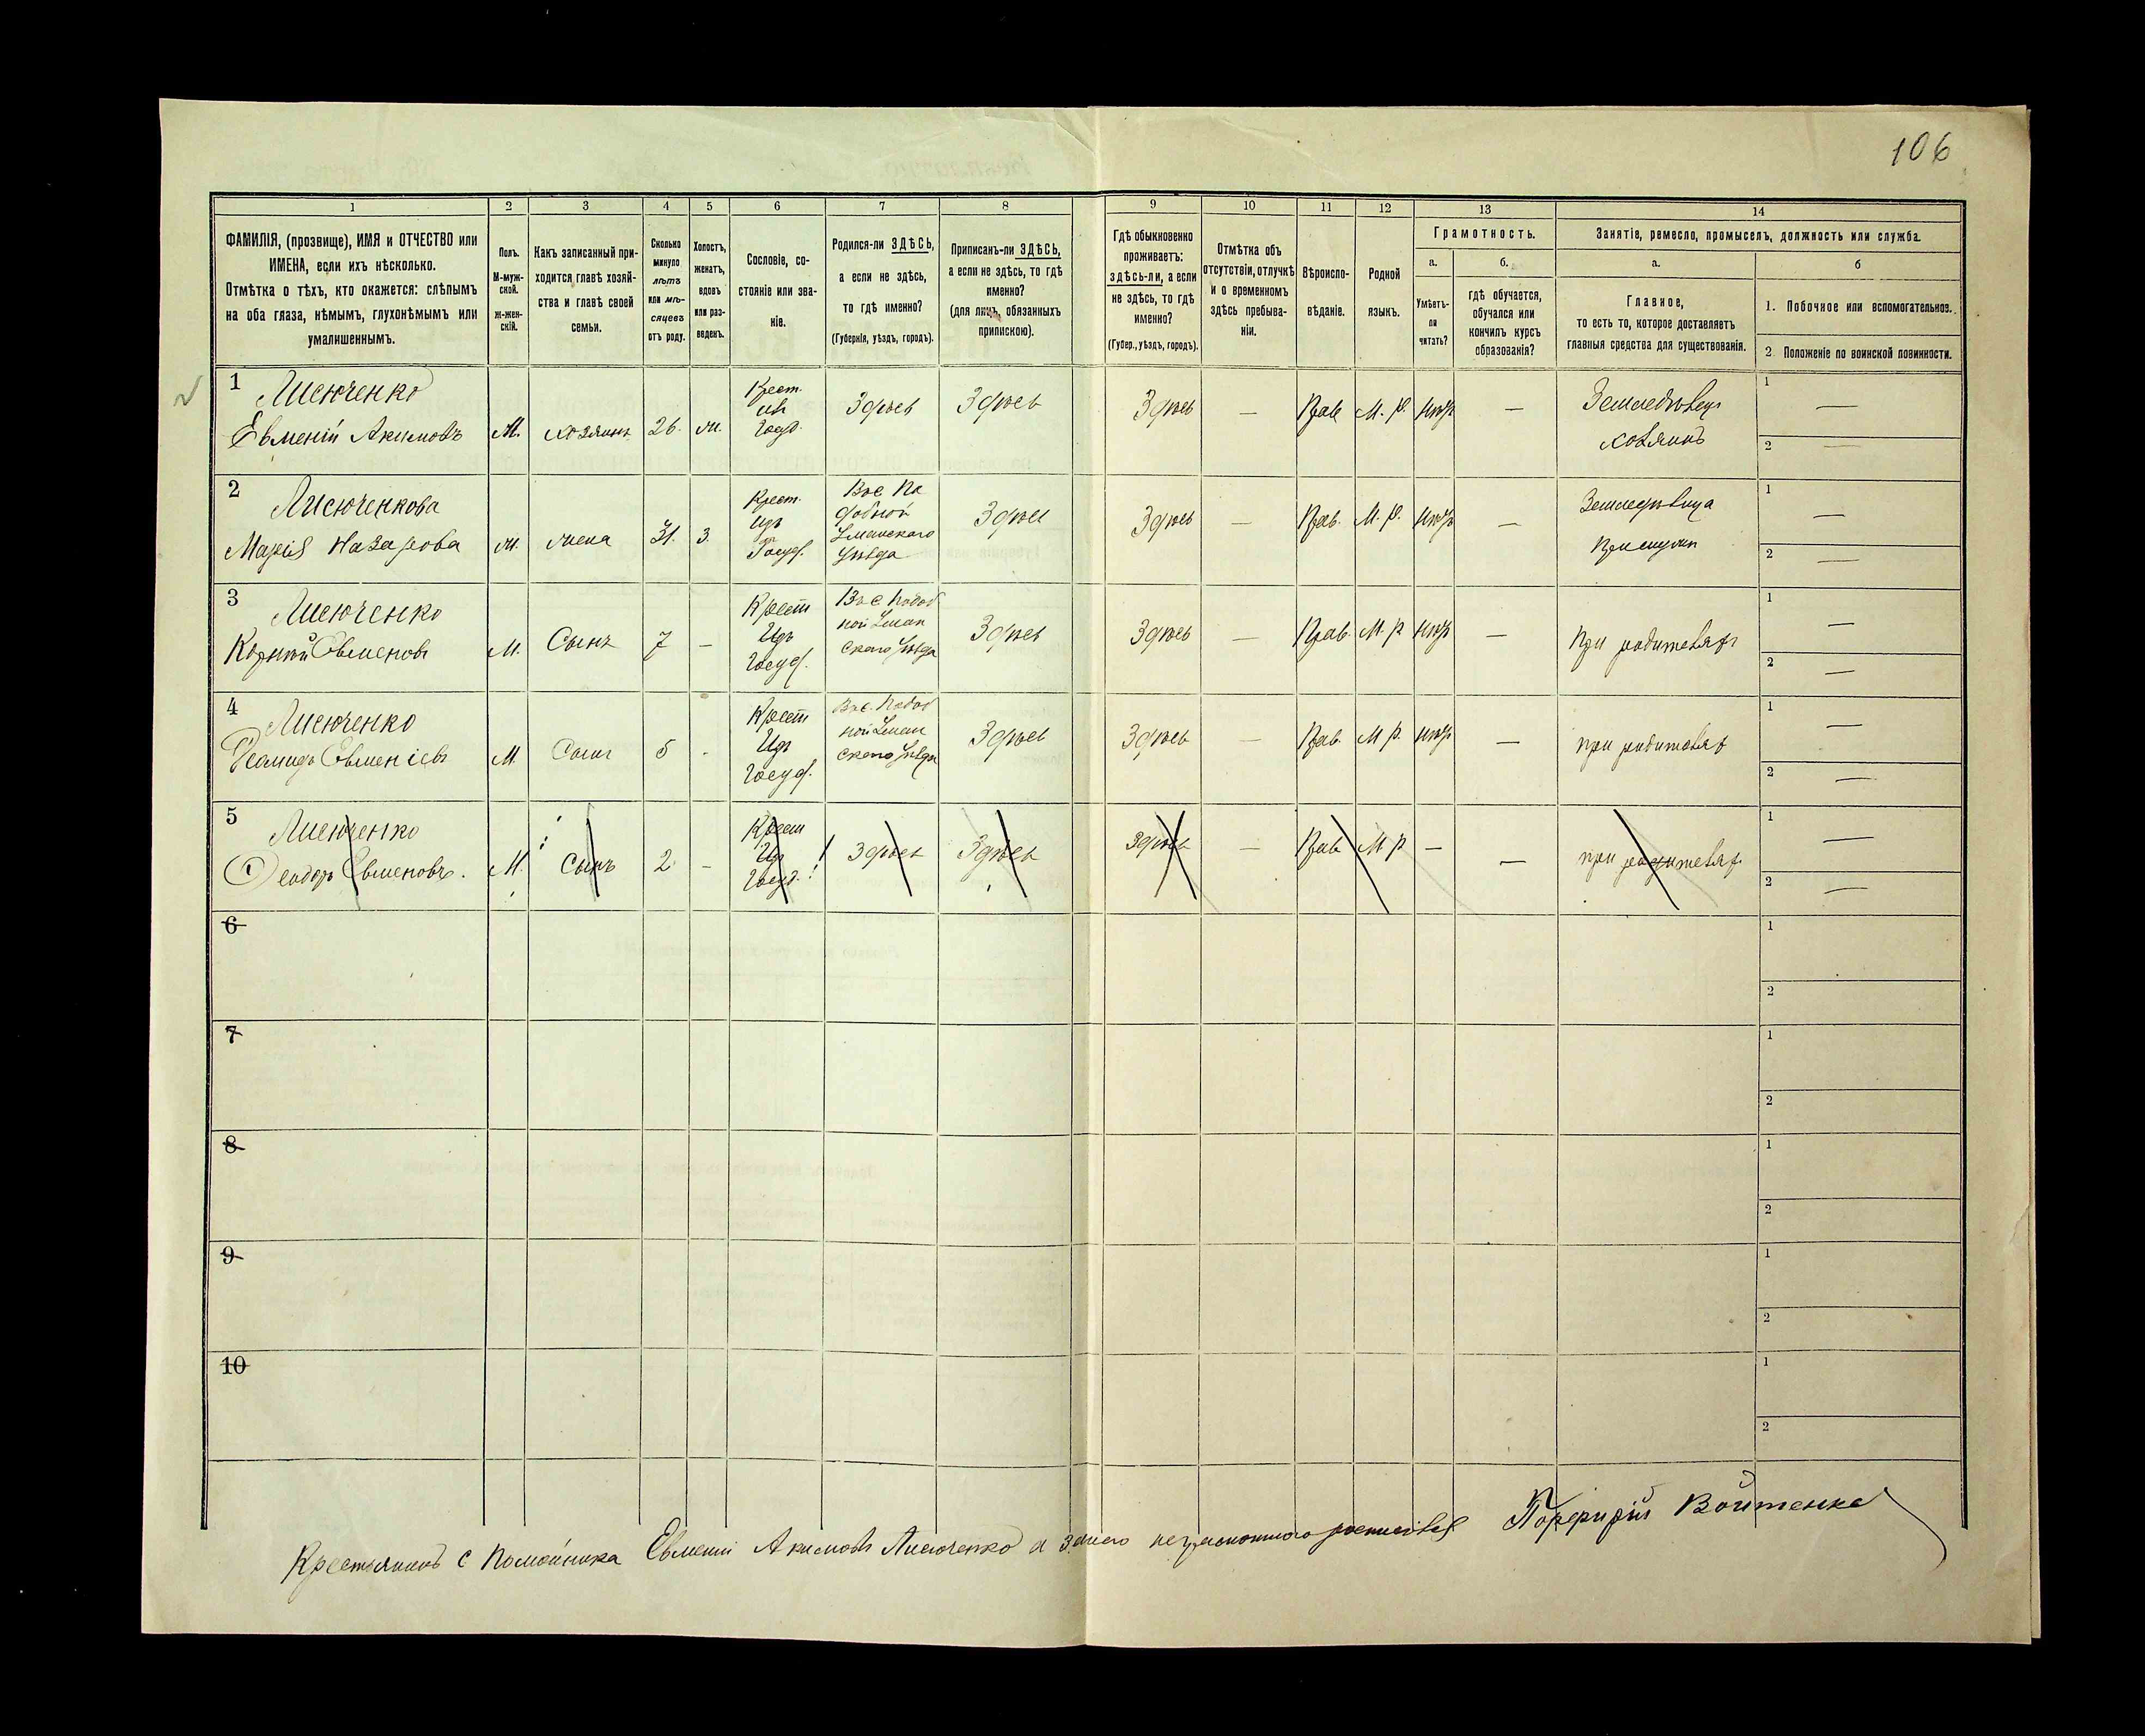 106
1
2
3
4
5
6
7
8
9
10
11
12
13
14
ФАМИЛІЯ, (прозвище), ИМЯ и ОТЧЕСТВО или
ИМЕНА, если ихъ нѣсколько.
Отмѣтка о тѣхъ, кто окажется: слѣпымъ
на оба глаза, нѣмымъ, глухонѣмымъ или
умалишеннымъ.
Полъ.
М-муж-
ской.
ж-жен-
скій.
Какъ записанный при-
ходится главѣ хозяй-
ства и главѣ своей
семьи.
Сколько
минуло
лѣтъ
или мѣ-
сяцевъ
отъ роду.
Холостъ,
женатъ,
вдовъ
или раз-
веденъ.
Сословіе, со-
стояніе или зва-
ніе.
Родился-ли ЗДѢСЬ,
а если не здѣсь,
то гдѣ именно?
(Губернія, уѣздъ, городъ).
Приписанъ-ли ЗДѢСЬ,
а если не здѣсь, то гдѣ
именно?
(для лицъ, обязанныхъ
припискою).
Гдѣ обыкновенно
проживаетъ:
здѣсь-ли, а если
не здѣсь, то гдѣ
именно?
(Губер., уѣздъ, городъ).
Отмѣтка объ
отсутствіи, отлучкѣ
и о временномъ
здѣсь пребыва-
ніи.
Вѣроиспо-
вѣданіе.
Родной
языкъ.
Грамотность.
а.
Умѣетъ-
ли
читать?
б.
гдѣ обучается,
обучался или
кончилъ курсъ
образованія?
Занятіе, ремесло, промыселъ, должность или служба.
а.
Главное,
то есть то, которое доставляетъ
главныя средства для существованія.
б
1. Побочное или вспомогательное.
2. Положеніе по воинской повинности.
1
Лисюченко
Евменій Акимовъ
М.
хозяинъ
26.
ж.
Крест.
изъ
Госуд.
Здѣсь
Здѣсь
Здѣсь
—
Прав
М. р.
нѣтъ
—
Земледѣлец
хозяинъ
1 —
2 —
2
Лисюченкова
Марія Назарова
ж.
жена
31.
3.
Крест.
Изъ
Госуд.
Въ с По
добной
Уманского
Уѣзда
Здѣсь
Здѣсь
—
Прав.
М. р.
нѣтъ
—
Земледѣлица
При мужи
1 —
2 —
3
Лисюченко
Корній Евменовъ
М.
Сынъ
7
—
Крест
Изъ
Госуд.
Въ с Подоб
ной Уман
ского Уѣзда
Здѣсь
Здѣсь
—
Прав.
М. р
нѣтъ
—
При родителях
1 —
2 —
4
Лисюченко
Евменіевъ
М.
Сынъ
5
-
Крест
Изъ
Госуд.
Въ с. Подоб
ной Уман
ского Уѣзда
Здѣсь
Здѣсь
—
Прав.
М р
нѣтъ
—
при родителях
1 —
2 —
5
Лисюченко
Феодоръ Евменовъ.
М.
Сынъ
2
—
Крест
Изъ
Госуд.
Здѣсь
Здѣсь
Здѣсь
—
Прав
М р
—
—
при родителях
1 —
2 —
6
1
2
7
1
2
8
1
2
9
1
2
10
1
2
Крестьянинъ с Помойника Евменій Акимовъ Лисюченко а за него неграмотного росписался Порфирій Войтенко